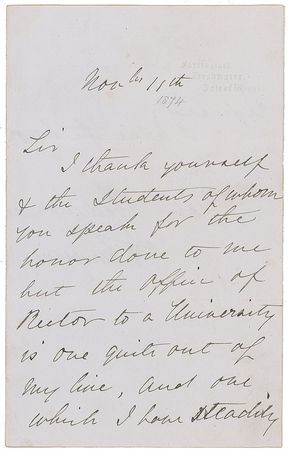 Novbr 11th
1874
Sir
I thank yourself
& the Students of whom
you speak for the
honor done to me
but the office of
Rector to a University
is one quite out of
my line, and one
which I have steadily